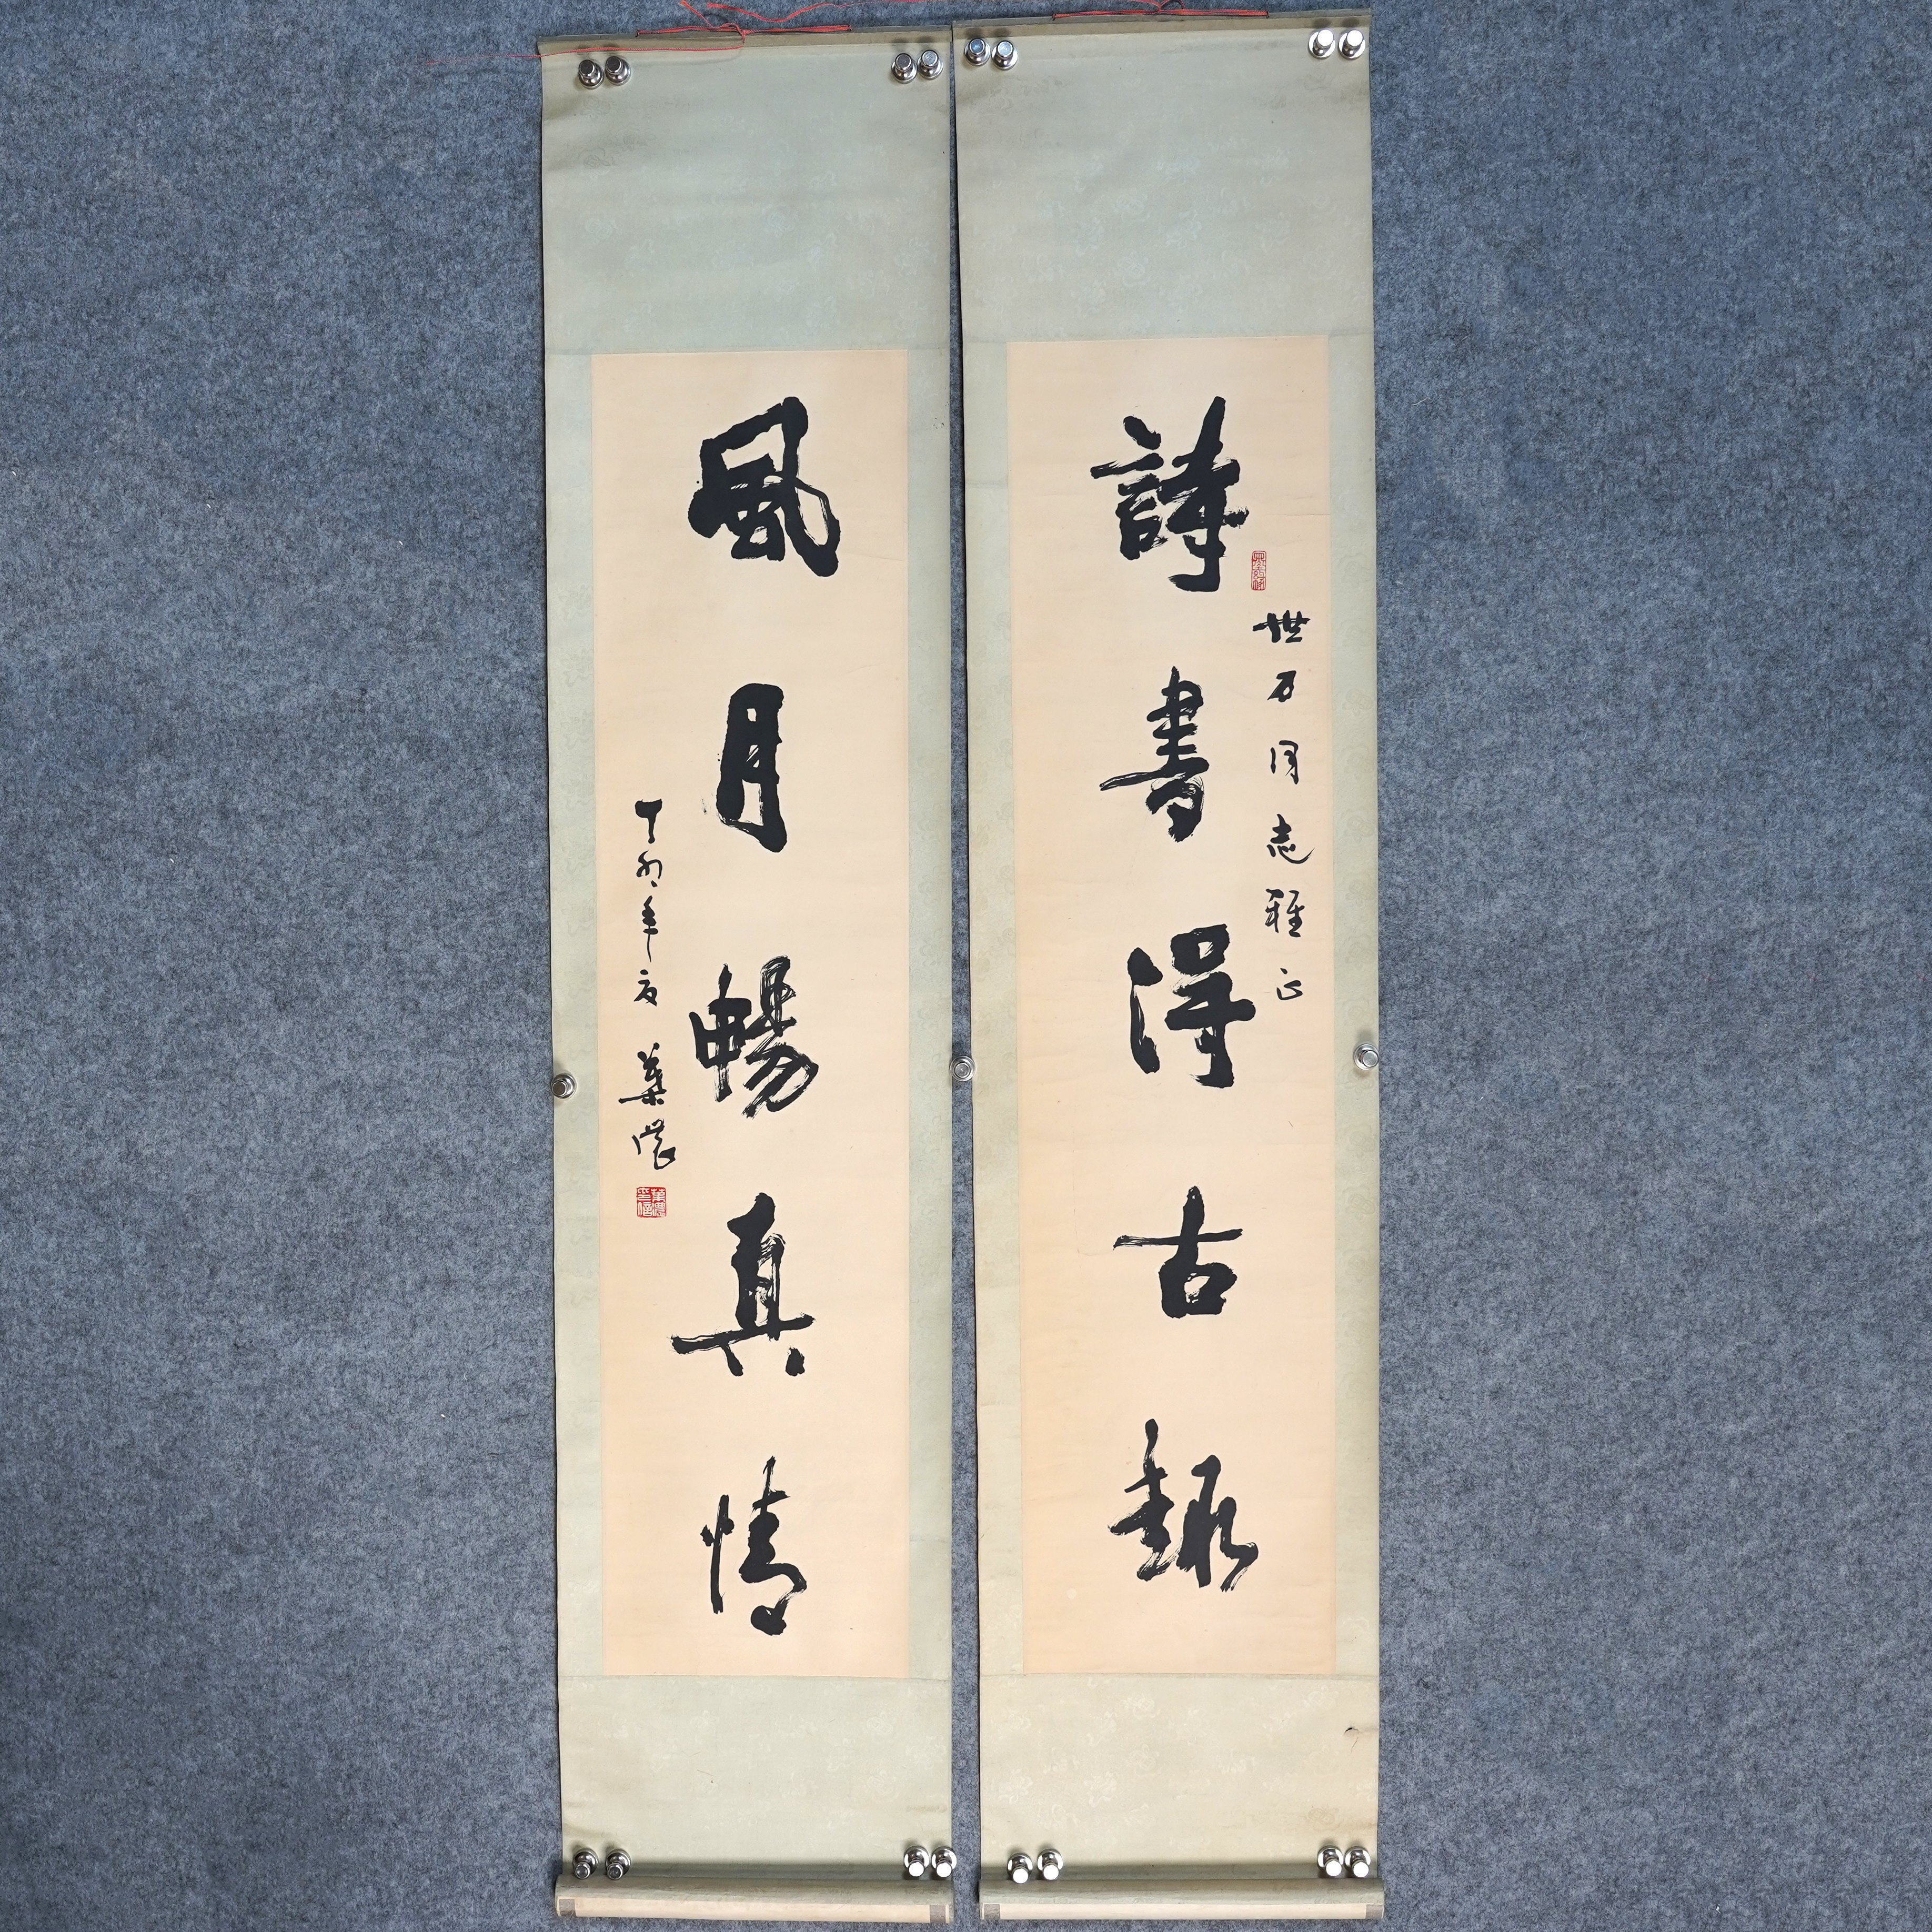 詩書得古趣
世石同志雅正
風月暢真情
丁卯年夏 葉濃